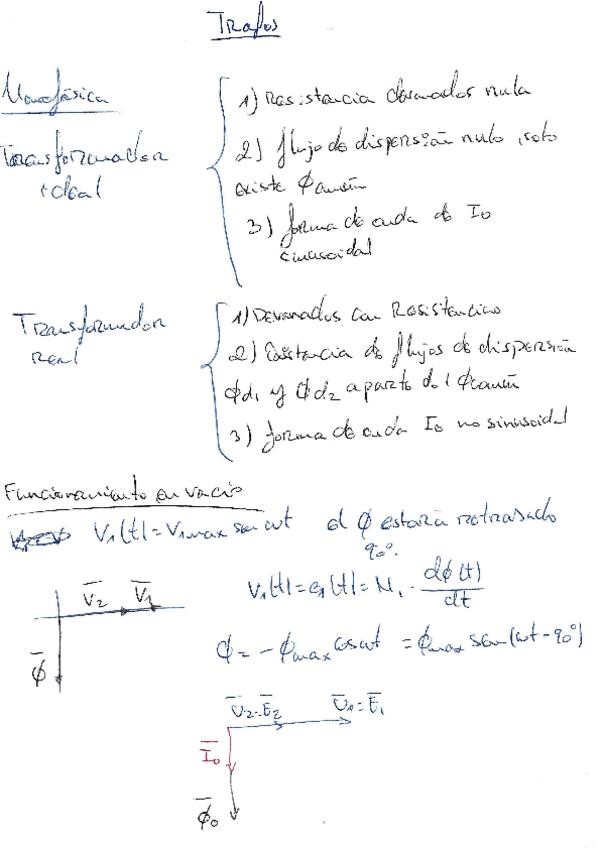 Trafos
Monofásica
Transformador ideal
1) Resistencia devanados nula
2) flujo de dispersión nulo, solo
existe Φ común
3) forma de onda de I0
sinusoidal
Transformador
real
1) Devanados con Resistencia
2) Existencia de flujos de dispersión
Φd1 y Φd2 aparte del Φcomún
3) forma de onda I0 no sinusoidal
Funcionamiento en vacio
V1(t) = V1max sen ωt el Φ estará retrasado
90º.
V̅2 V̅1
V1(t) = e1(t) = N1 · dΦ(t)/dt
Φ̅
Φ = -Φmax cos ωt = Φmax sen(ωt - 90º)
V̅2 = E̅2 V̅1 = E̅1
I̅0
Φ̅0